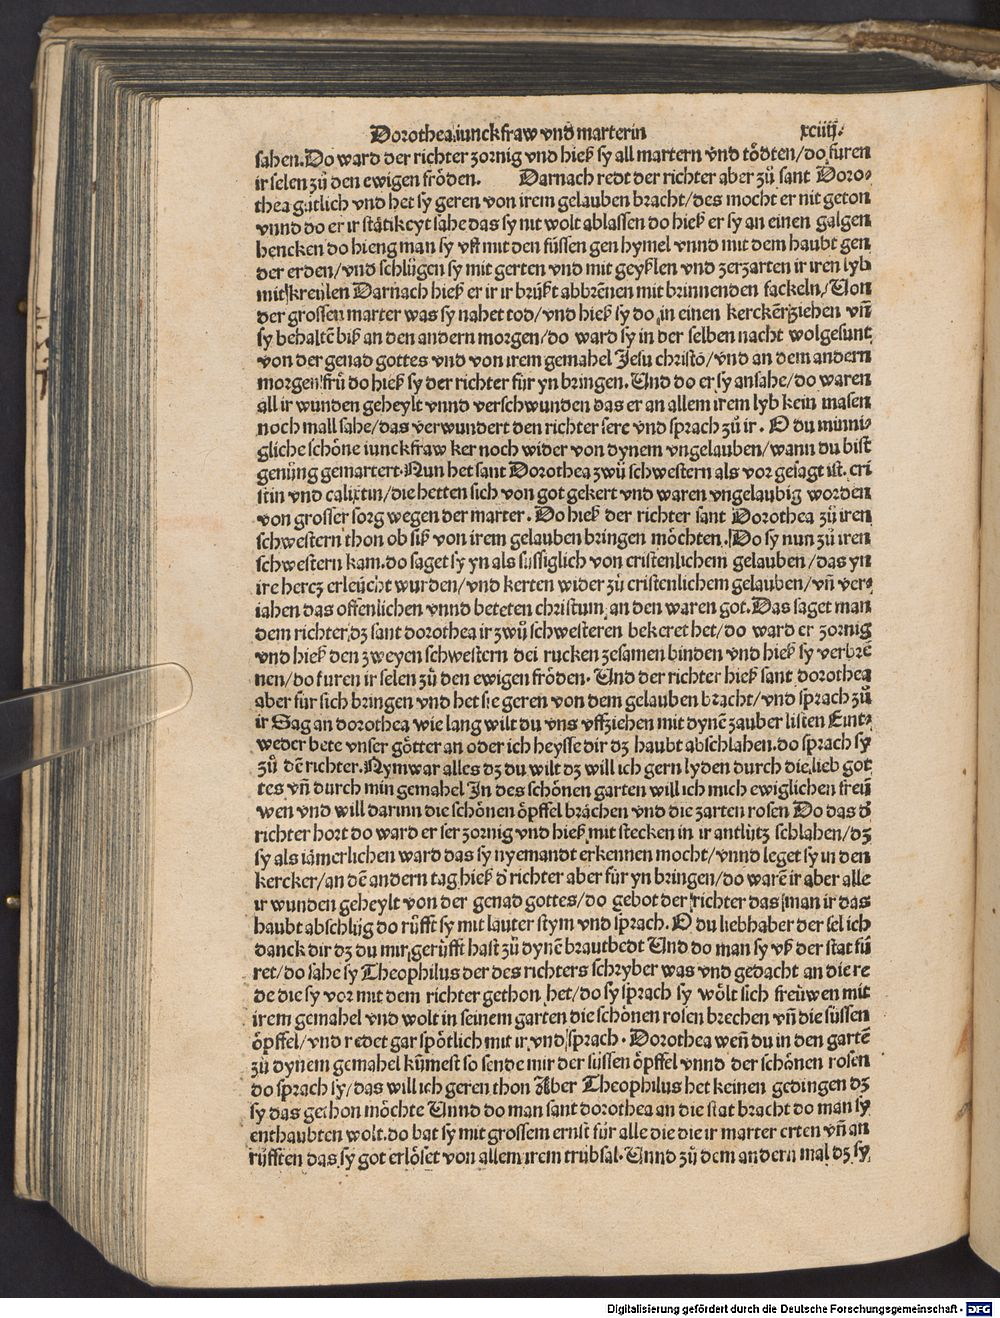 Dorothea iunckfraw vnd marterin xciiij.
sahen. Do ward der richter zornig vnd hieß sy all martern vnd tödten/do furen
ir selen zů den ewigen fröden. Darnach redt der richter aber zů sant Doro⸗
thea gůtlich vnd het sy geren von irem gelauben bracht/des mocht er nit geton
vnnd do er ir stätikeyt sahe das sy nit wolt ablassen do hieß er sy an einen galgen
hencken do hieng man sy vff mit den füssen gen hymel vnnd mit dem haubt gen
der erden/vnd schlůgen sy mit gerten vnd mit geyßlen vnd zerzarten ir iren lyb
mit kreulen Darnach hieß er ir ir brüßt abbrēnen mit brinnenden fackeln/Von
der grossen marter was sy nahet tod/vnd hieß sy do in einen kerckēr ziehen vñ
sy behaltē biß an den andern morgen/do ward sy in der selben nacht wolgesunt
von der genad gottes vnd von irem gemahel Jesu christō/vnd an dem andern
morgen frů do hieß sy der richter für yn bringen. Und do er sy ansahe/do waren
all ir wunden geheylt vnnd verschwunden das er an allem irem lyb kein masen
noch mall sahe/das verwundert den richter sere vnd sprach zů ir. O du minni⸗
gliche schöne iunckfraw ker noch wider von dynem vngelauben/wann du bist
genůng gemartert. Nun het sant Dorothea zwů schwestern als vor gesagt ist. cri
stin vnd calixtin/die hetten sich von got gekert vnd waren vngelaubig worden
von grosser sorg wegen der marter. Do hieß der richter sant Dorothea zů iren
schwestern thon ob siß von irem gelauben bringen möchten. Do sy nun zů iren
schwestern kam. do saget sy yn als süssiglich von cristenlichem gelauben/das yn
ire hercz erleücht wurden/vnd kerten wider zů cristenlichem gelauben/vñ ver⸗
iahen das offenlichen vnnd beteten christum an den waren got. Das saget man
dem richter dz sant dorothea ir zwů schwesteren bekeret het/do ward er zornig
vnd hieß den zweyen schwestern dei rucken zesamen binden vnd hieß sy verbrē
nen/do furen ir selen zů den ewigen fröden. Und der richter hieß sant dorothea
aber für sich bringen vnd het sie geren von dem gelauben bracht/vnd sprach zů
ir Sag an dorothea wie lang wilt du vns vffziehen mit dynē zauber listen Eint⸗
weder bete vnser götter an oder ich heysse dir dz haubt abschlahen. do sprach sy
zů dē richter. Nym war alles dz du wilt dz will ich gern lyden durch die lieb got
tes vñ durch min gemahel In des schönen garten will ich mich ewiglichen freü
wen vnd will darinn die schönen öpffel brächen vnd die zarten rosen Do das d᷑
richter hort do ward er ser zornig vnd hieß mit stecken in ir antlütz schlahen/dz
sy als iämerlichen ward das sy nyemandt erkennen mocht/vnnd leget sy in den
kercker/an dē andern tag hieß d᷑ richter aber für yn bringen/do warē ir aber alle
ir wunden geheylt von der genad gottes/do gebot der richter das man ir das
haubt abschlůg do růfft sy mit lauter stym vnd sprach. O du liebhaber der sel ich
danck dir dz du mir gerůfft hast zů dynē brautbedt Und do man sy vß der stat fů
ret/do sahe sy Theophilus der des richters schryber was vnd gedacht an die re
de die sy vor mit dem richter gethon het/do sy sprach sy wölt sich freüwen mit
irem gemahel vnd wolt in seinem garten die schönen rosen brechen vñ die süssen
öpffel/vnd redet gar spötlich mit ir vnd sprach. Dorothea weñ du in den gartē
zů dynem gemahel kümest so sende mir der süssen öpffel vnnd der schönen rosen
do sprach sy/das will ich geren thon Aber Theophilus het keinen gedingen dz
sy das gethon möchte Unnd do man sant dorothea an die stat bracht do man sy
enthaubten wolt. do bat sy mit grossem ernst für alle die die ir marter erten vñ an
růfften das sy got erlöset von allem irem trübsal. Unnd zů dem andern mal dz sy
Digitalisierung gefördert durch die Deutsche Forschungsgemeinschaft - DFG